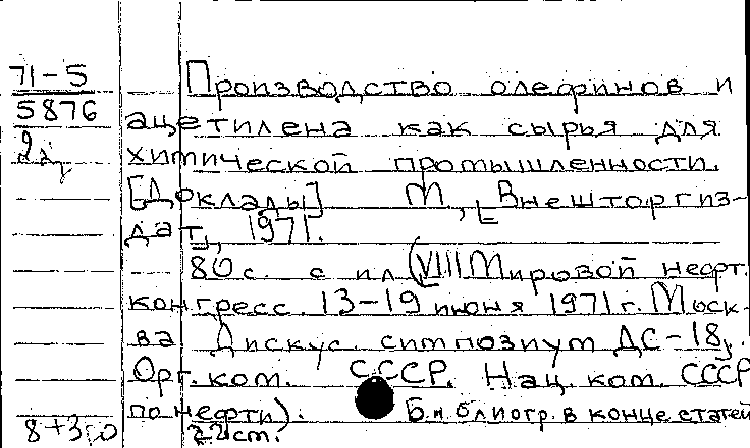 71-5
5876
Производство олефинов и
ацетилена как сырья для
химической промышленности.
[Доклады] М., [Внешторгиз-
дат], 1971.
80 с. с ил. (VIII Мировой нефт.
конгресс. 13-19 июня 1971 г. Моск-
ва Дискус. симпозиум ДС-18).
Орг. ком. СССР. Нац. ком. СССР
по нефти). Библиогр. в конце статей
22 см.